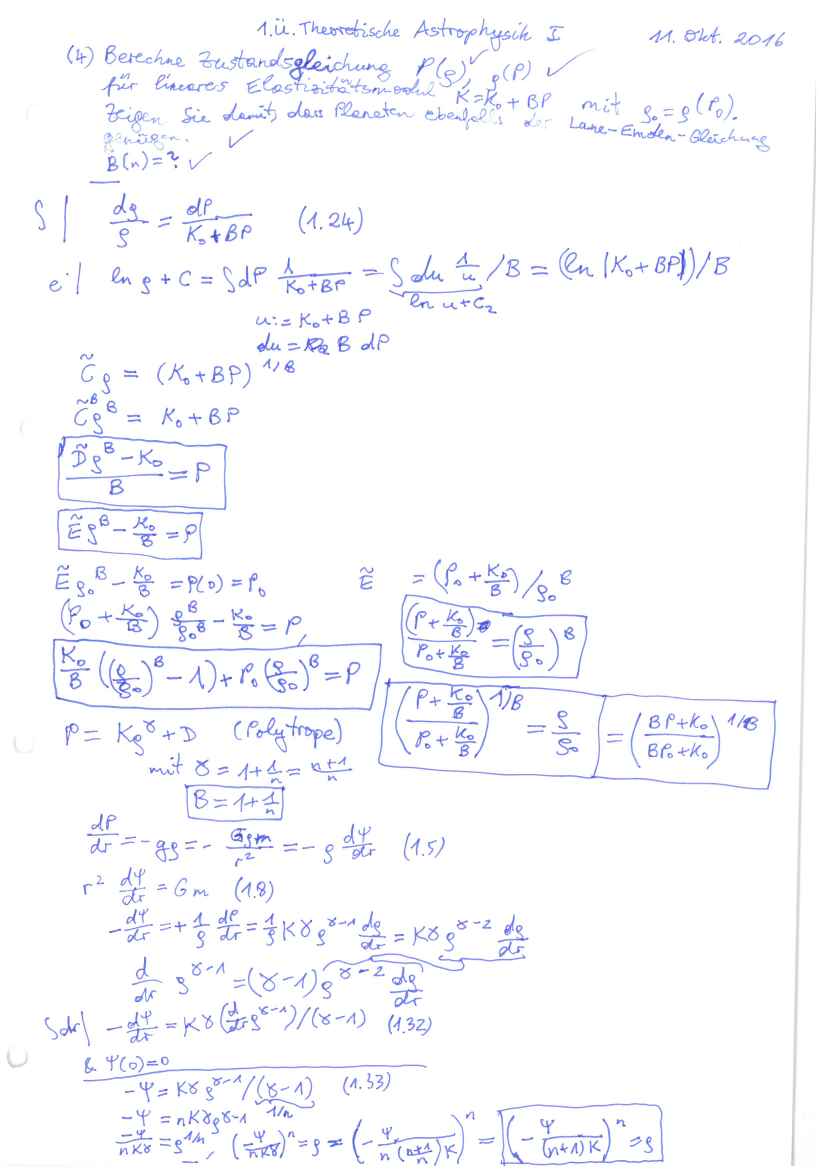 1.Ü. Theoretische Astrophysik I 11. Okt. 2016
(4) Berechne Zustandsgleichung P(ρ), ρ(P) ✓
für lineares Elastizitätsmodul K=K₀+BP mit ρ₀=ρ(P₀).
Zeigen Sie damit, dass Planeten ebenfalls der Lane-Emden-Gleichung
genügen. ✓
B(n)=? ✓
∫| dρ/ρ = dP/(K₀+BP) (1.24)
e^:| ln ρ + C = ∫dP 1/(K₀+BP) = ∫du 1/u /B = (ln |K₀+BP|)/B
ln u+C₂
u:=K₀+BP
du = B dP
C̃ρ = (K₀+BP)^(1/B)
C̃^B ρ^B = K₀+BP
(D̃ρ^B - K₀)/B = P
Ẽρ^B - K₀/B = P
Ẽρ₀^B - K₀/B = P(0) = P₀ Ẽ = (P₀+K₀/B)/ρ₀^B
(P₀+K₀/B) ρ^B/ρ₀^B - K₀/B = P, (P+K₀/B)/(P₀+K₀/B) = (ρ/ρ₀)^B
K₀/B ((ρ/ρ₀)^B - 1) + P₀(ρ/ρ₀)^B = P
((P+K₀/B)/(P₀+K₀/B))^(1/B) = ρ/ρ₀ = ((BP+K₀)/(BP₀+K₀))^(1/B)
P = Kρ^γ + D (Polytrope)
mit γ = 1+1/n = (n+1)/n
B = 1+1/n
dP/dr = -gρ = - Gρm/r² = -ρ dΨ/dr (1.5)
r² dΨ/dr = Gm (1.8)
-dΨ/dr = +1/ρ dP/dr = 1/ρ Kγρ^(γ-1) dρ/dr = Kγρ^(γ-2) dρ/dr
d/dr ρ^(γ-1) = (γ-1)ρ^(γ-2) dρ/dr
∫dr| -dΨ/dr = Kγ(d/dr ρ^(γ-1))/(γ-1) (1.32)
& Ψ(0)=0
-Ψ = Kγρ^(γ-1)/(γ-1) (1.33)
1/n
-Ψ = nKγρ^(γ-1)
-Ψ/(nKγ) = ρ^(1/n), (-Ψ/(nKγ))^n = ρ = (-Ψ/(n((n+1)/n)K))^n = (-Ψ/((n+1)K))^n = ρ